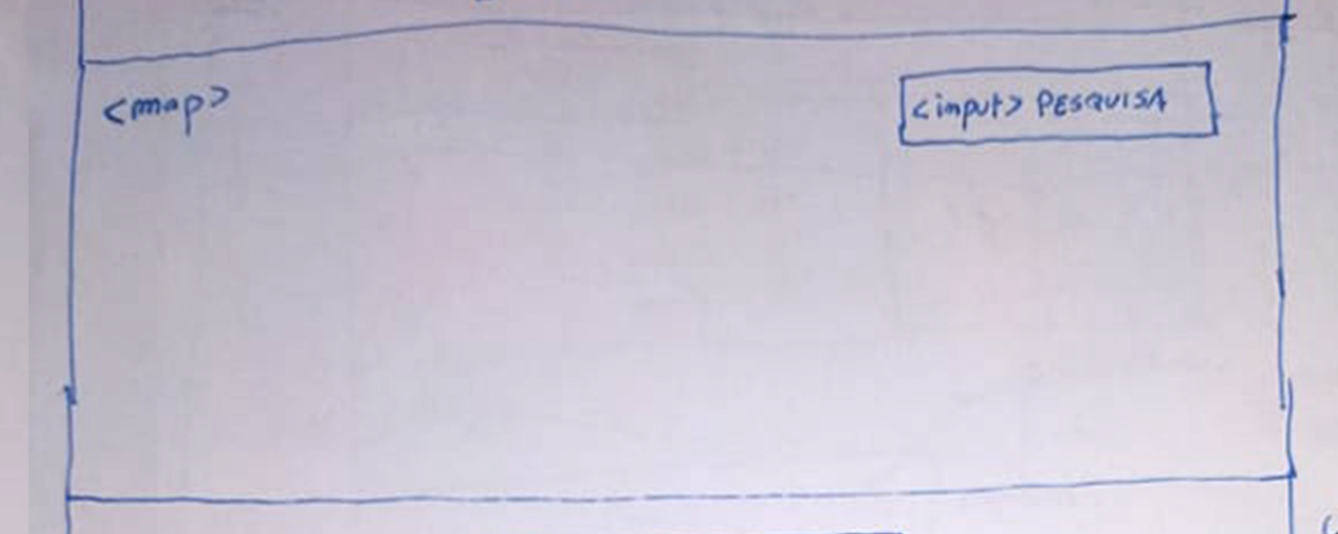 <map>
<input> PESQUISA